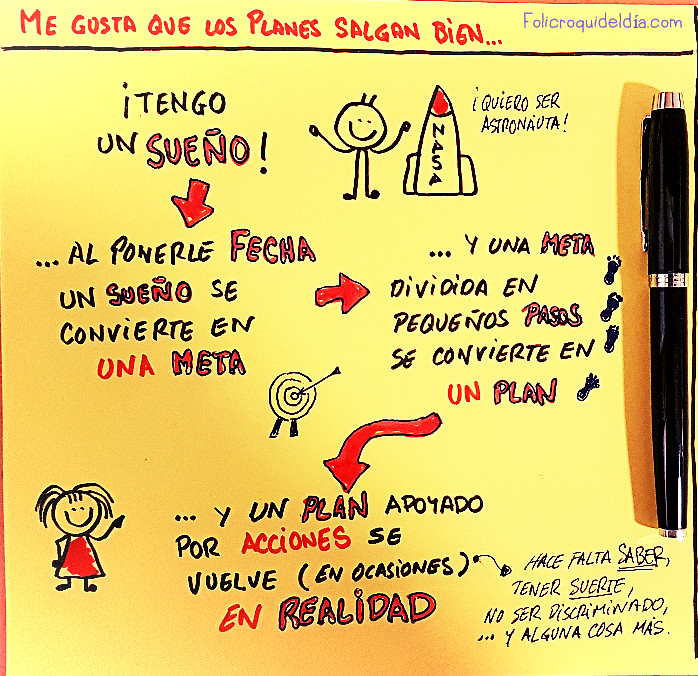 ME GUSTA QUE LOS PLANES SALGAN BIEN...
Folicroquideldía.com
¡TENGO
UN SUEÑO!
NASA
¡QUIERO SER
ASTRONAUTA!
...AL PONERLE FECHA
UN SUEÑO SE
CONVIERTE EN
UNA META
... Y UNA META
DIVIDIDA EN
PEQUEÑOS PASOS
SE CONVIERTE EN
UN PLAN
... Y UN PLAN APOYADO
POR ACCIONES SE
VUELVE (EN OCASIONES)
EN REALIDAD
HACE FALTA SABER,
TENER SUERTE,
NO SER DISCRIMINADO,
... Y ALGUNA COSA MÁS.